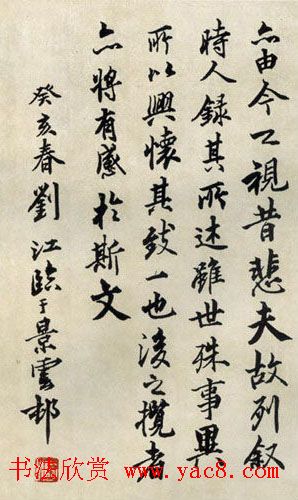 亦由今之視昔悲夫故列叙
時人錄其所述雖世殊事異
所以興懷其致一也後之攬者
亦將有感於斯文
癸亥春劉江臨于景雲邨
书法欣赏 www.yac8.com